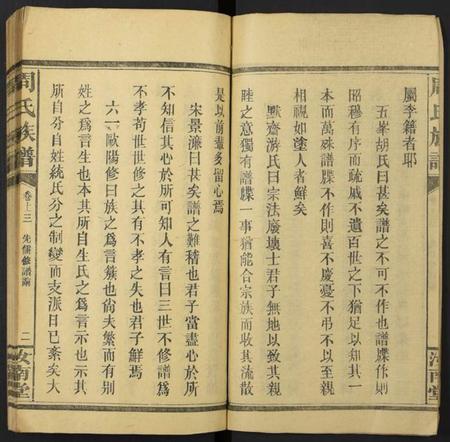 屬李籍者耶
五峯胡氏曰甚矣譜之不可不作也譜牒作則
昭穆有序而疏戚不遺百世之下猶足以知其一
本而萬殊譜牒不作則喜不慶憂不弔不以至親
相視如塗人者鮮矣
默齋游氏曰宗法廢壊士君子無地以致其親
睦之意獨有譜牒一事猶能合宗族而收其流散
是以前輩多留心焉
宋景濂曰甚矣譜之難稽也君子當盡心於所
不知信其心於所可知人有言曰三世不修譜為
不孝苟世世修之其有不孝之失也君子鮮焉
六一歐陽修曰族之為言簇也尙夫繁而有别
姓之為言生也本其所自生氏之為言示也示其
所自分自姓統氏分之制變而支派日已紊矣大
周氏族譜
卷十三
先儒修譜論
二
汝南堂
周氏族譜
汝南堂